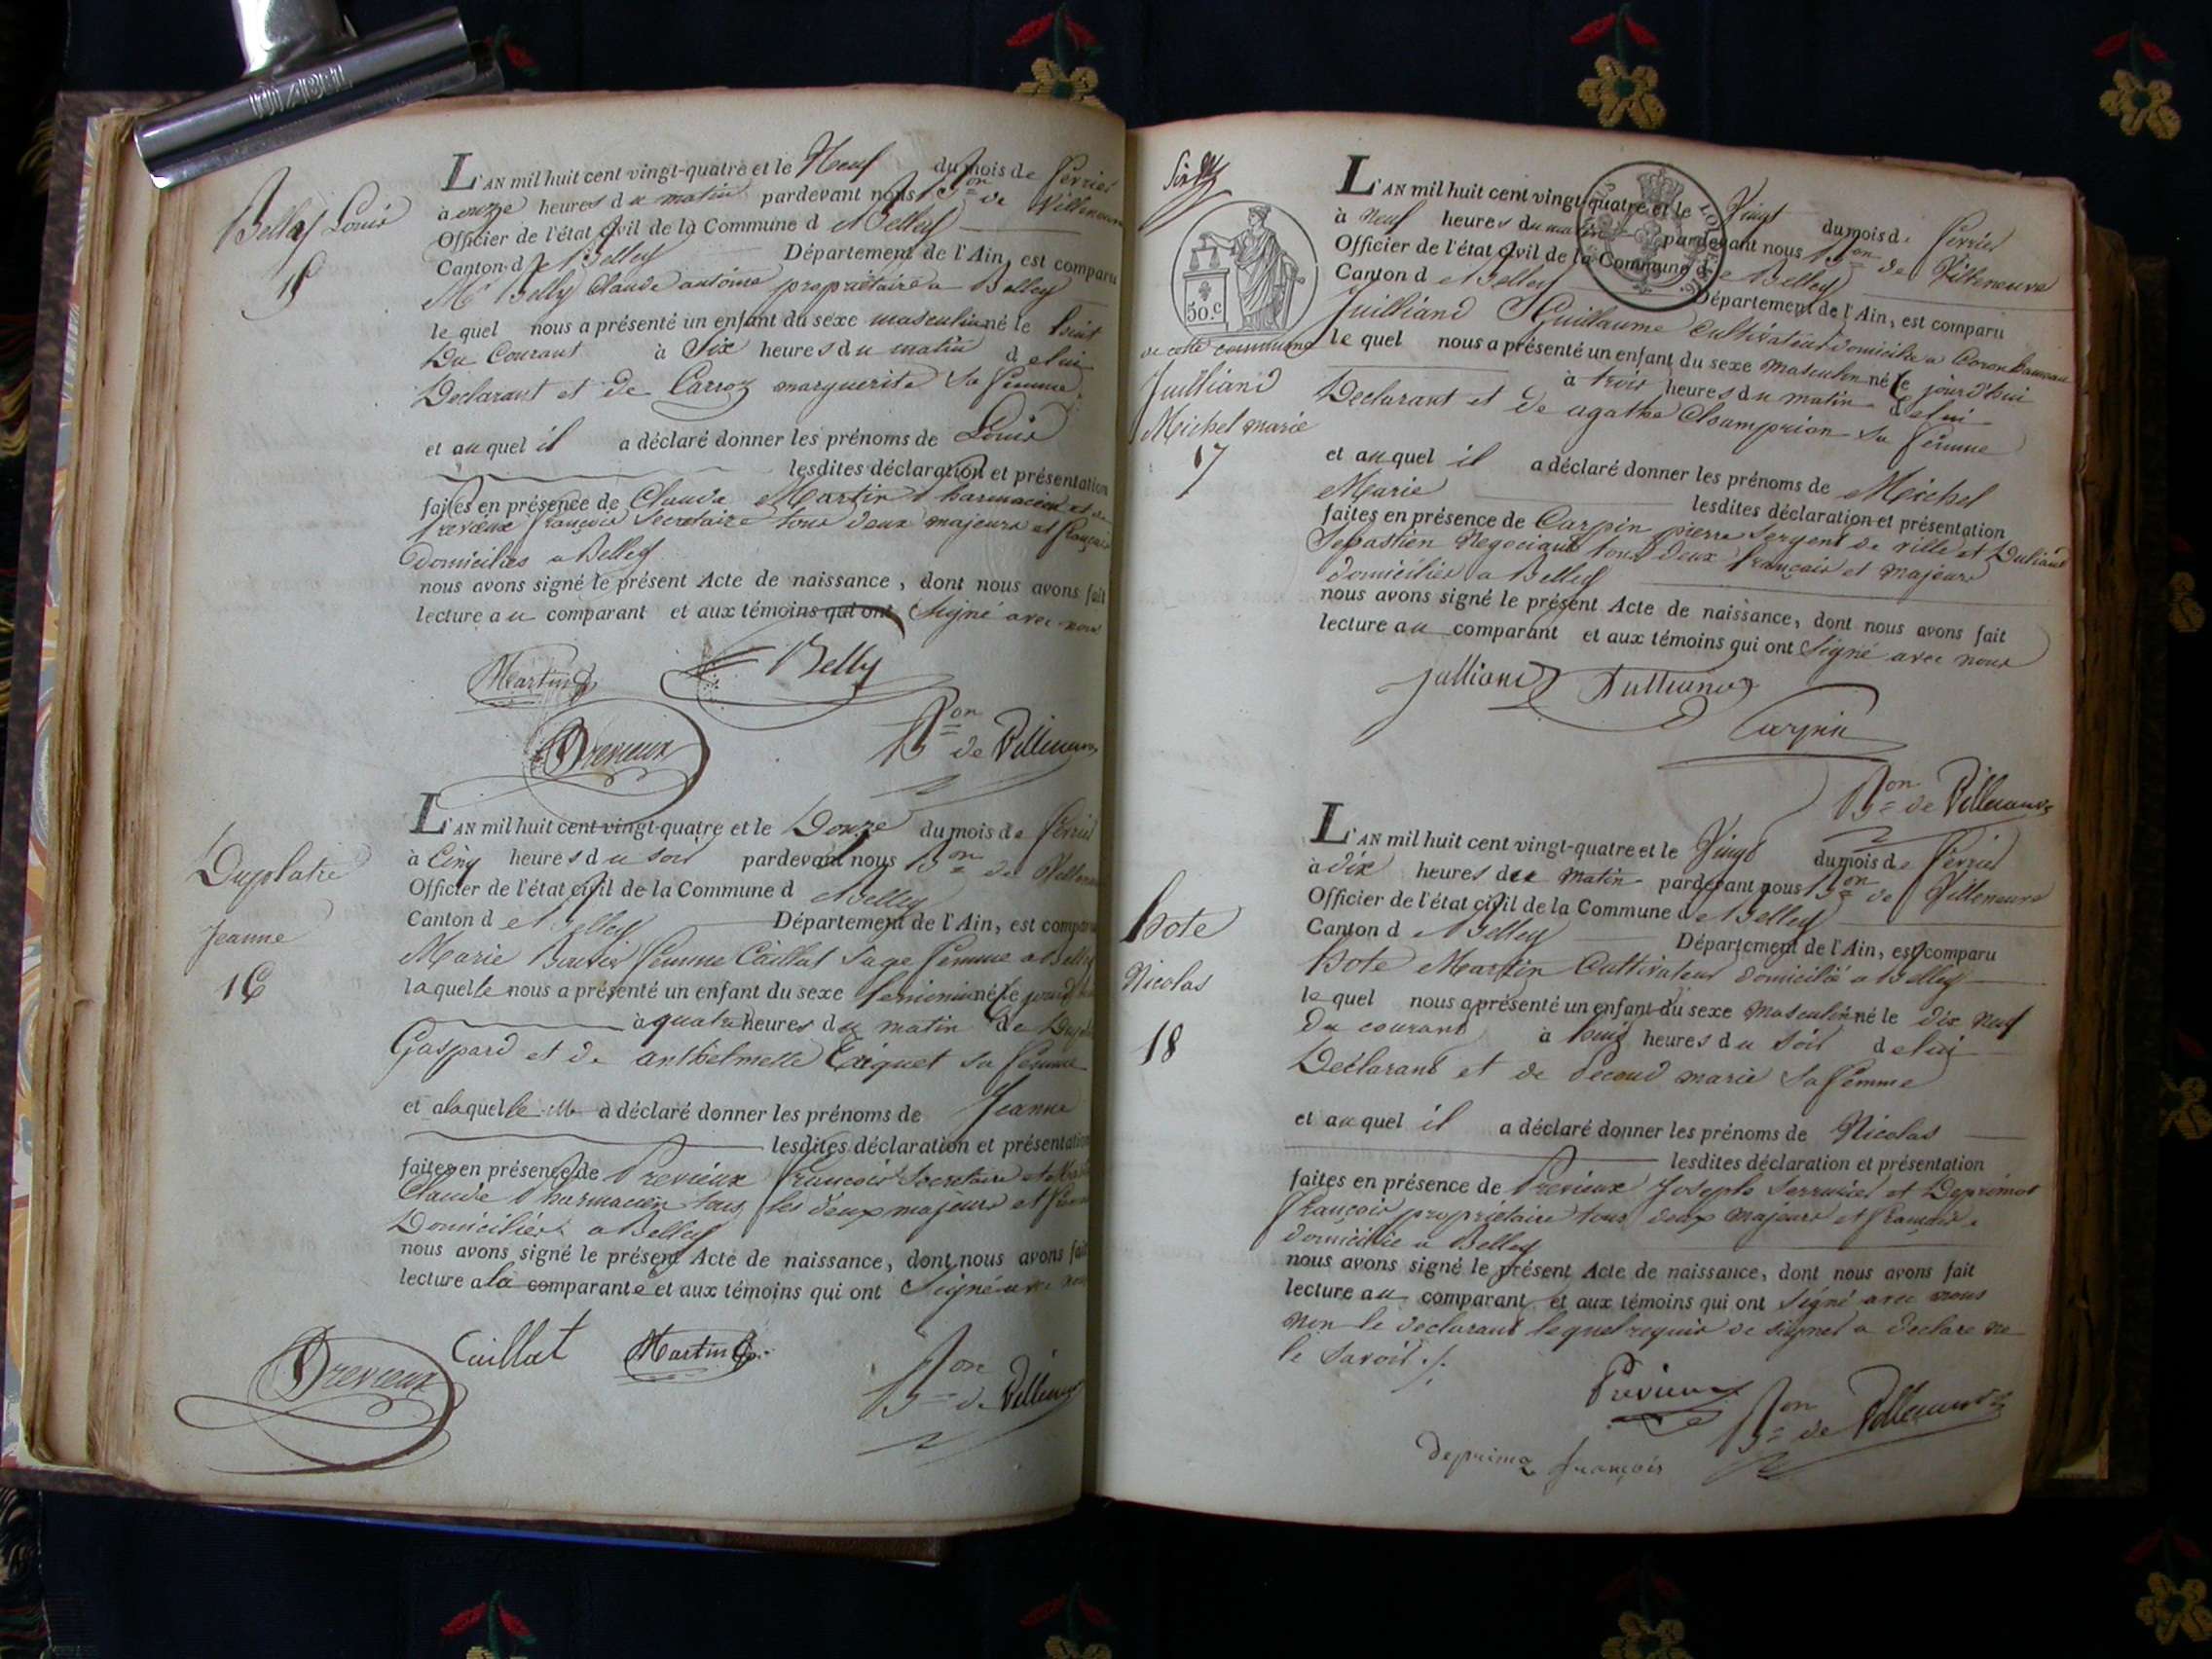 DIABEL
Belly Louis
15
L'AN mil huit cent vingt-quatre et le Neuf du mois de fevrier
à onze heures du matin pardevant nous Bon de Villeneuve
Officier de l'état civil de la Commune de Belley
Canton de Belley Département de l'Ain, est comparu
Mr Belly Claude antoine propriétaire a Belley
le quel nous a présenté un enfant du sexe masculin né le huit
Du Courant à Six heures du matin de lui
Declarant et de Carroz marguerite Sa femme
et au quel il a déclaré donner les prénoms de Louis
lesdites déclaration et présentation
faites en présence de Claude Martin Pharmacien et de
Previeux françois Secretaire tous deux majeurs et français
Domiciliés a Belley
nous avons signé le présent Acte de naissance, dont nous avons fait
lecture au comparant et aux témoins qui ont Signé avec nous
Martin Belly
Previeux Bon de Villeneuve
Duplatre
Jeanne
16
L'AN mil huit cent vingt-quatre et le Douze du mois de fevrier
à Cinq heures du soir pardevant nous Bon de Villeneuve
Officier de l'état civil de la Commune de Belley
Canton de Belley Département de l'Ain, est comparu
Marie Bouvier femme Caillat Sage femme a Belley
laquelle nous a présenté un enfant du sexe feminin né le jourd'hui
à quatre heures du matin de
Gaspard et de anthelmette Sa femme
et a laquelle a déclaré donner les prénoms de Jeanne
lesdites déclaration et présentation
faites en présence de Previeux françois Secretaire et Martin
Claude Pharmacien tous les deux majeurs et français
Domiciliés a Belley
nous avons signé le présent Acte de naissance, dont nous avons fait
lecture a la comparante et aux témoins qui ont Signé avec nous
Previeux Caillat Martin Bon de Villeneuve
Six
50.c
LOI DE
Juilliand
Michel marie
17
L'AN mil huit cent vingt-quatre et le Vingt du mois de fevrier
à Neuf heures du matin pardevant nous Bon de Villeneuve
Officier de l'état civil de la Commune de Belley
Canton de Belley Département de l'Ain, est comparu
Juilliand Guillaume Cultivateur domicilié a
de cette commune le quel nous a présenté un enfant du sexe masculin né le jourd'hui
à trois heures du matin de lui
Declarant et de agathe Champrion Sa femme
et au quel il a déclaré donner les prénoms de Michel
Marie lesdites déclaration et présentation
faites en présence de Carpin pierre Sergent de ville et Dulliand
Sebastien Negociant tous deux français et majeurs
domiciliés a Belley
nous avons signé le présent Acte de naissance, dont nous avons fait
lecture au comparant et aux témoins qui ont Signé avec nous
Julliand Dulliand
Carpin
Bon de Villeneuve
Bote
Nicolas
18
L'AN mil huit cent vingt-quatre et le Vingt du mois de fevrier
à dix heures du matin pardevant nous Bon de Villeneuve
Officier de l'état civil de la Commune de Belley
Canton de Belley Département de l'Ain, est comparu
Bote Martin Cultivateur domicilié a Belley
le quel nous a présenté un enfant du sexe masculin né le dix neuf
du courant à huit heures du soir de lui
Declarant et de Secoud marie Sa femme
et au quel il a déclaré donner les prénoms de Nicolas
lesdites déclaration et présentation
faites en présence de Previeux Joseph Serrurier et Deprimoz
françois propriétaire tous deux majeurs et français
domicilié a Belley
nous avons signé le présent Acte de naissance, dont nous avons fait
lecture au comparant et aux témoins qui ont Signé avec nous
non le declarant lequel requis de signer a declaré ne
le Savoir ./.
Previeux Bon de Villeneuve
deprimoz françois